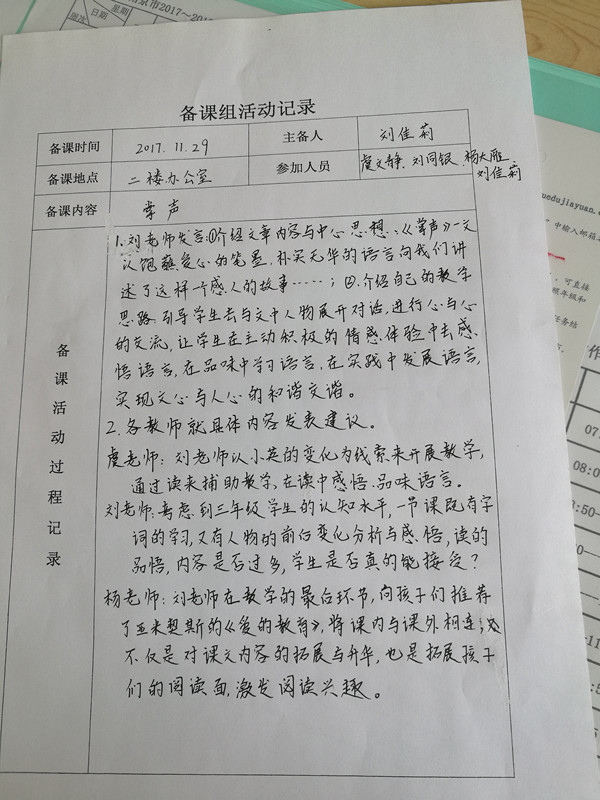 南京市2017~20
周次 日期 星期
备课组活动记录
备课时间 2017.11.29 主备人 刘佳莉
备课地点 二楼办公室 参加人员 虞文静、刘同银、杨大雁、
刘佳莉
备课内容 掌声
备课活动过程记录
1.刘老师发言:①介绍文章内容与中心思想、《掌声》一文
以饱蘸爱心的笔墨、朴实无华的语言向我们讲
述了这样一个感人的故事……;②.介绍自己的教学
思路,引导学生去与文中人物展开对话,进行心与心
的交流,让学生在主动积极的情感体验中去感
悟语言,在品味中学习语言,在实践中发展语言,
实现文心与人心的和谐交谐。
2.各教师就具体内容发表建议。
虞老师:刘老师以小英的变化为线索来开展教学,
通过读来捕助教学,在读中感悟、品味语言。
刘老师:考虑到三年级学生的认知水平,一节课既有字
词的学习,又有人物的前后变化分析与感悟,读的
品悟,内容是否过多,学生是否真的能接受?
杨老师:刘老师在教学的最后环节,向孩子们推荐
了亚米契斯的《爱的教育》,将课内与课外相连,这
不仅是对课文内容的拓展与升华,也是拓展孩子
们的阅读面,激发阅读兴趣。
uedujiayuan.c
”中输入邮箱
,可直接
照年级和
任务结
作
07
08:0
:50-